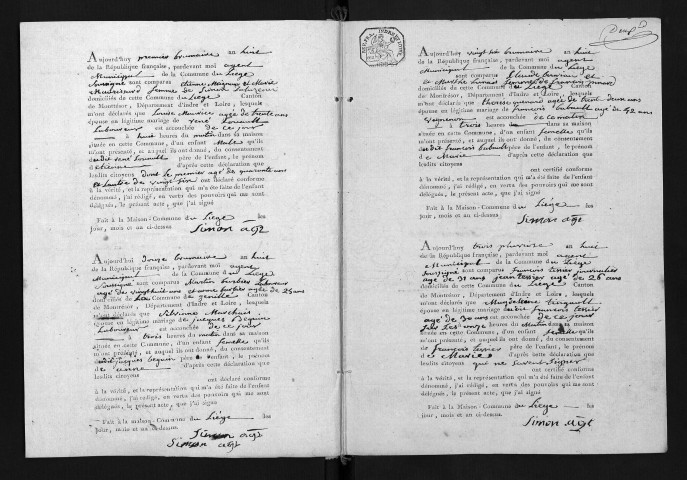 Aujourd'huy premier brumaire an huit
de la République française, pardevant moi agent
Municipal de la Commune du Liège
Soussigné sont comparus etienne et Marie
femme de
domiciliés de cette Commune du Liège Canton
de Montrésor, Département d'Indre et Loire, lesquels
m'ont déclarés que Louise agée de trente ans
épouse en légitime mariage de rené
Laboureur est accouchée de ce jour
à huit heures du matin dans sa maison
située en cette Commune, d'un enfant Male qu'ils
m'ont présenté, et auquel ils ont donné, du consentement
dudit rené père de l'enfant, le prénom
d'etienne d'après cette déclaration que
lesdits citoyens dont le premier agé de quarante ans
et l'autre de vingt six ont déclaré conforme
à la vérité, et la représentation qui m'a été faite de l'enfant
dénommé, j'ai rédigé, en vertu des pouvoirs qui me sont
délégués, le présent acte, que j'ai signé
Fait à la Maison-Commune du Liège les
jour, mois et an ci-dessus
Simon agt
Aujourd'huy douze brumaire an huit
de la République française, pardevant moi agent
Municipal de la Commune du Liège
Soussigné sont comparus Martin Laboureur
agé de vingt huit ans et anne agée de 25 ans
domiciliés de la Commune de genillé Canton
de Montrésor, Département d'Indre et Loire, lesquels
m'ont déclarés que Silvinne Marchais
épouse en légitime mariage de jacques Bequin
Laboureur est accouchée de ce jour
à trois heures du matin dans sa maison
située en cette Commune, d'un enfant femelle qu'ils
m'ont présenté, et auquel ils ont donné, du consentement
dudit jacques bequin père de l'enfant, le prénom
de anne d'après cette déclaration que
lesdits citoyens
ont déclaré conforme
à la vérité, et la représentation qui m'a été faite de l'enfant
dénommé, j'ai rédigé, en vertu des pouvoirs qui me sont
délégués, le présent acte, que j'ai signé
Fait à la maison-Commune du Liège les
jour, mois et an ci-dessus.
Simon agt
Simon agt
Aujourd'huy vingt six brumaire an huit
de la République française, pardevant moi agent
Municipal de la Commune du Liège
sont comparus Claude et
Marthe femme de françois
domiciliés de cette Commune du Liège Canton
de Montrésor, Département d'Indre et Loire, lesquels
m'ont déclarés que therese agée de trente deux ans
épouse en légitime mariage de françois agé de 42 ans
est accouchée de ce matin
à trois heures dans sa maison
située en cette Commune, d'un enfant femelle qu'ils
m'ont présenté, et auquel ils ont donné, du consentement
dudit françois père de l'enfant, le prénom
de Marie d'après cette déclaration que
lesdits citoyens
ont certifié conforme
à la vérité, et la représentation qui m'a été faite de l'enfant
dénommé, j'ai rédigé, en vertu des pouvoirs qui me sont
délégués, le présent acte, que j'ai signé
Fait à la Maison-Commune du Liège les
jour, mois et an ci-dessus
Simon agt
Aujourd'huy trois pluviose an huit
de la République française, pardevant moi agent
Municipal de la Commune du Liège
Soussigné sont comparus françois texier journallier
agé de 31 ans jean texier agé de 26 ans
domiciliés de cette Commune du Liège Canton
de Montrésor, Département d'Indre et Loire, lesquels
m'ont déclarés que Magdeleine
épouse en légitime mariage dudit françois texier
agé de 30 ans est accouchée de ce jour
sur les cinq heures du Matin dans sa maison
située en cette Commune, d'un enfant femelle qu'ils
m'ont présenté, et auquel ils ont donné, du consentement
de françois texier père de l'enfant, le prénom
de Marie d'après cette déclaration que
lesdits citoyens qui ne savent signer
ont certifié conforme
à la vérité, et la représentation qui m'a été faite de l'enfant
dénommé, j'ai rédigé, en vertu des pouvoirs qui me sont
délégués, le présent acte, que j'ai signé
Fait à la Maison-Commune du Liège les
jour, mois et an ci-dessus.
Simon agt